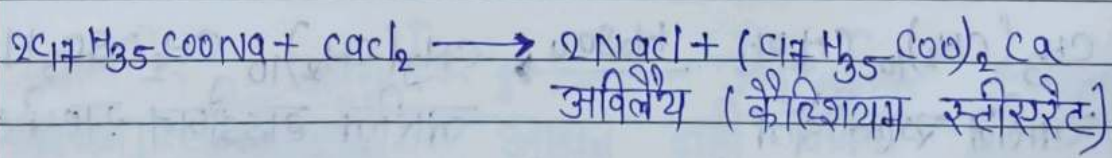 2C17H35COONa + CaCl2 ⟶ 2NaCl + (C17H35COO)2Ca
अविलेय (कैल्शियम स्तीएरेट)